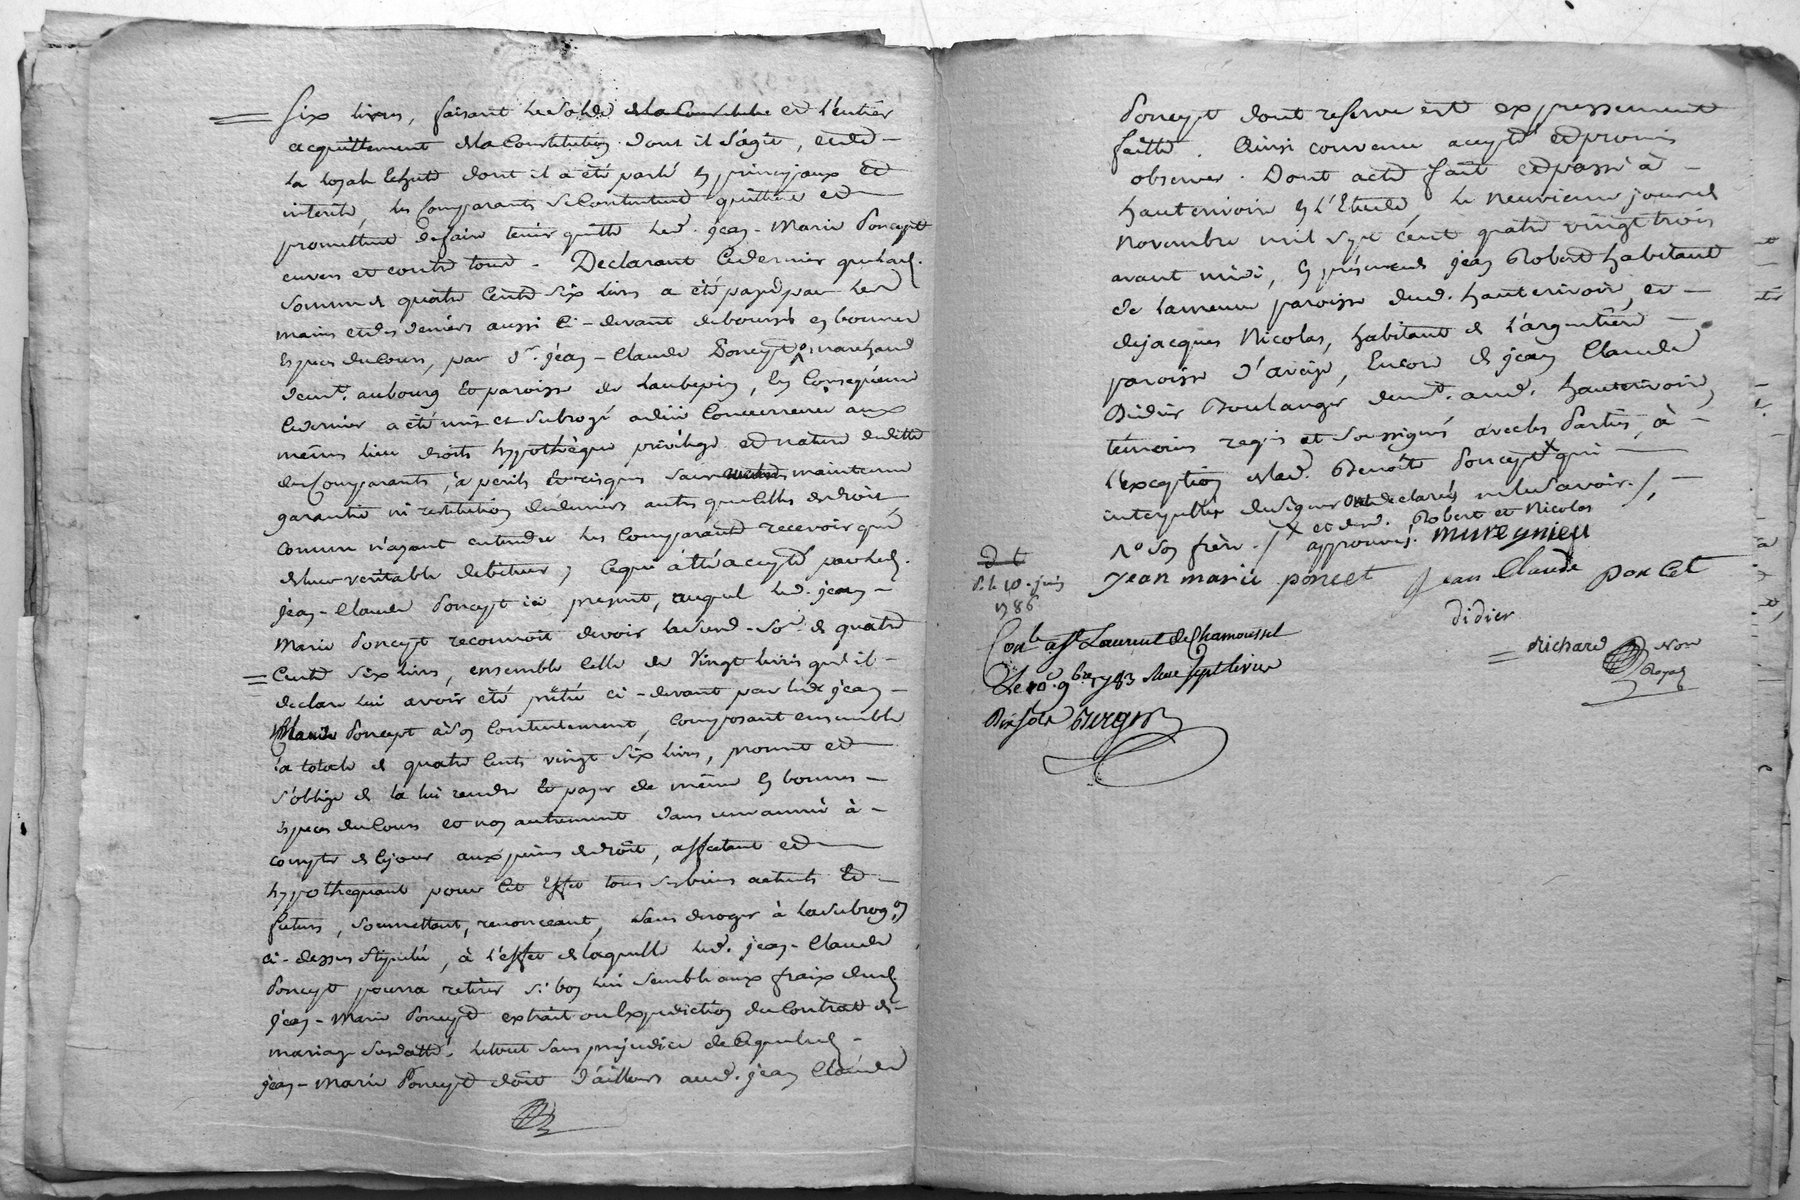 Six livres, faisant le solde et l'entier
acquittement de la Constitution dont il s'agit, et de
la loyale Echute dont il a été parlé en principaux et
interêts, les Comparants se Contentent quittent et
promettent de faire tenir quitte led. jean-Marie Poncept
envers et contre tous. Declarant Ce dernier que lad.
somme de quatre Cents six livres a été payé par les
mains et des deniers aussi Ci-devant deboursés en bonnes
Espèces du Cours, par Sr. jean-Claude Poncept marchand
demt. au bourg et paroisse de Laubepin, En Conséquence
Ce dernier a été mis et subrogé au lieu Concurrence aux
mêmes lieu droits hypothèque privilege et nature de dette
des Comparants, à perils et risques sans maintenue
garantie ni restitution de deniers autres que Celles de droit
comme n'ayant entendu les Comparants recevoir que
de leur veritable debiteur, Ce qui a été accepté par led.
jean-Claude Poncept ici present, auquel led. jean-
Marie Poncept reconnoit devoir lasusd. Soe. de quatre
Cents Six livres, ensemble Celle de Vingt livres qu'il
declare lui avoir été prêtée ci-devant par led. jean-
Claude Poncept à son Contentement, Composant ensemble
la totale de quatre Cents vingt Six livres, promet et
s'oblige de la lui rendre et payer de même en bonnes
éspeces du Cours et non autrement dans une année à
compter de Ce jour aux peines de droit, affectant et
hypothequant pour Cet Effet tous ses biens actuels et
futurs, Soumettant, renonceant, sans deroger à la subrogon
ci-dessus stipulée, à l'effet de laquelle led. jean-Claude
Poncept pourra retirer si bon lui semble aux fraix dud.
jean-Marie Poncept extrait ou Expedition du Contrat de
mariage susdatté. Le tout sans prejudice de Ce que led.
jean-Marie Poncept doit d'ailleurs aud. jean Claude
Poncept dont reserve est expressement
faitte. Ainsi convenu accepté et promis
observer. Dont acte fait et passé à
hauterivoire en l'Etude, le neuvieme jour de
Novembre mil Sept cent quatre vingt trois
avant midi, En présence de jean Robert habitant
de la meme paroisse dud. hauterivoire, et
de jacques Nicolas, habitant de L'argentiere
paroisse d'aveize, Encore de jean Claude
Didier Boulanger demt. aud. hauterivoire,
témoins requis et Soussignés avec les Parties, à
l'exception de lad. Benoîte Poncept X qui
interpellés de signer ont declarés ne le savoir./.
No son frère./ X et desd. Robert et Nicolas
approuvés. mure gnieu
D t
P. le 10. juin
1786
jean marie poncet jean Claude poncet
didier
Conle. a St Laurent de Chamousset
Le 10e. 9bre 1783 Reçu sept livres
Dix sols
Richard Nore
Royal